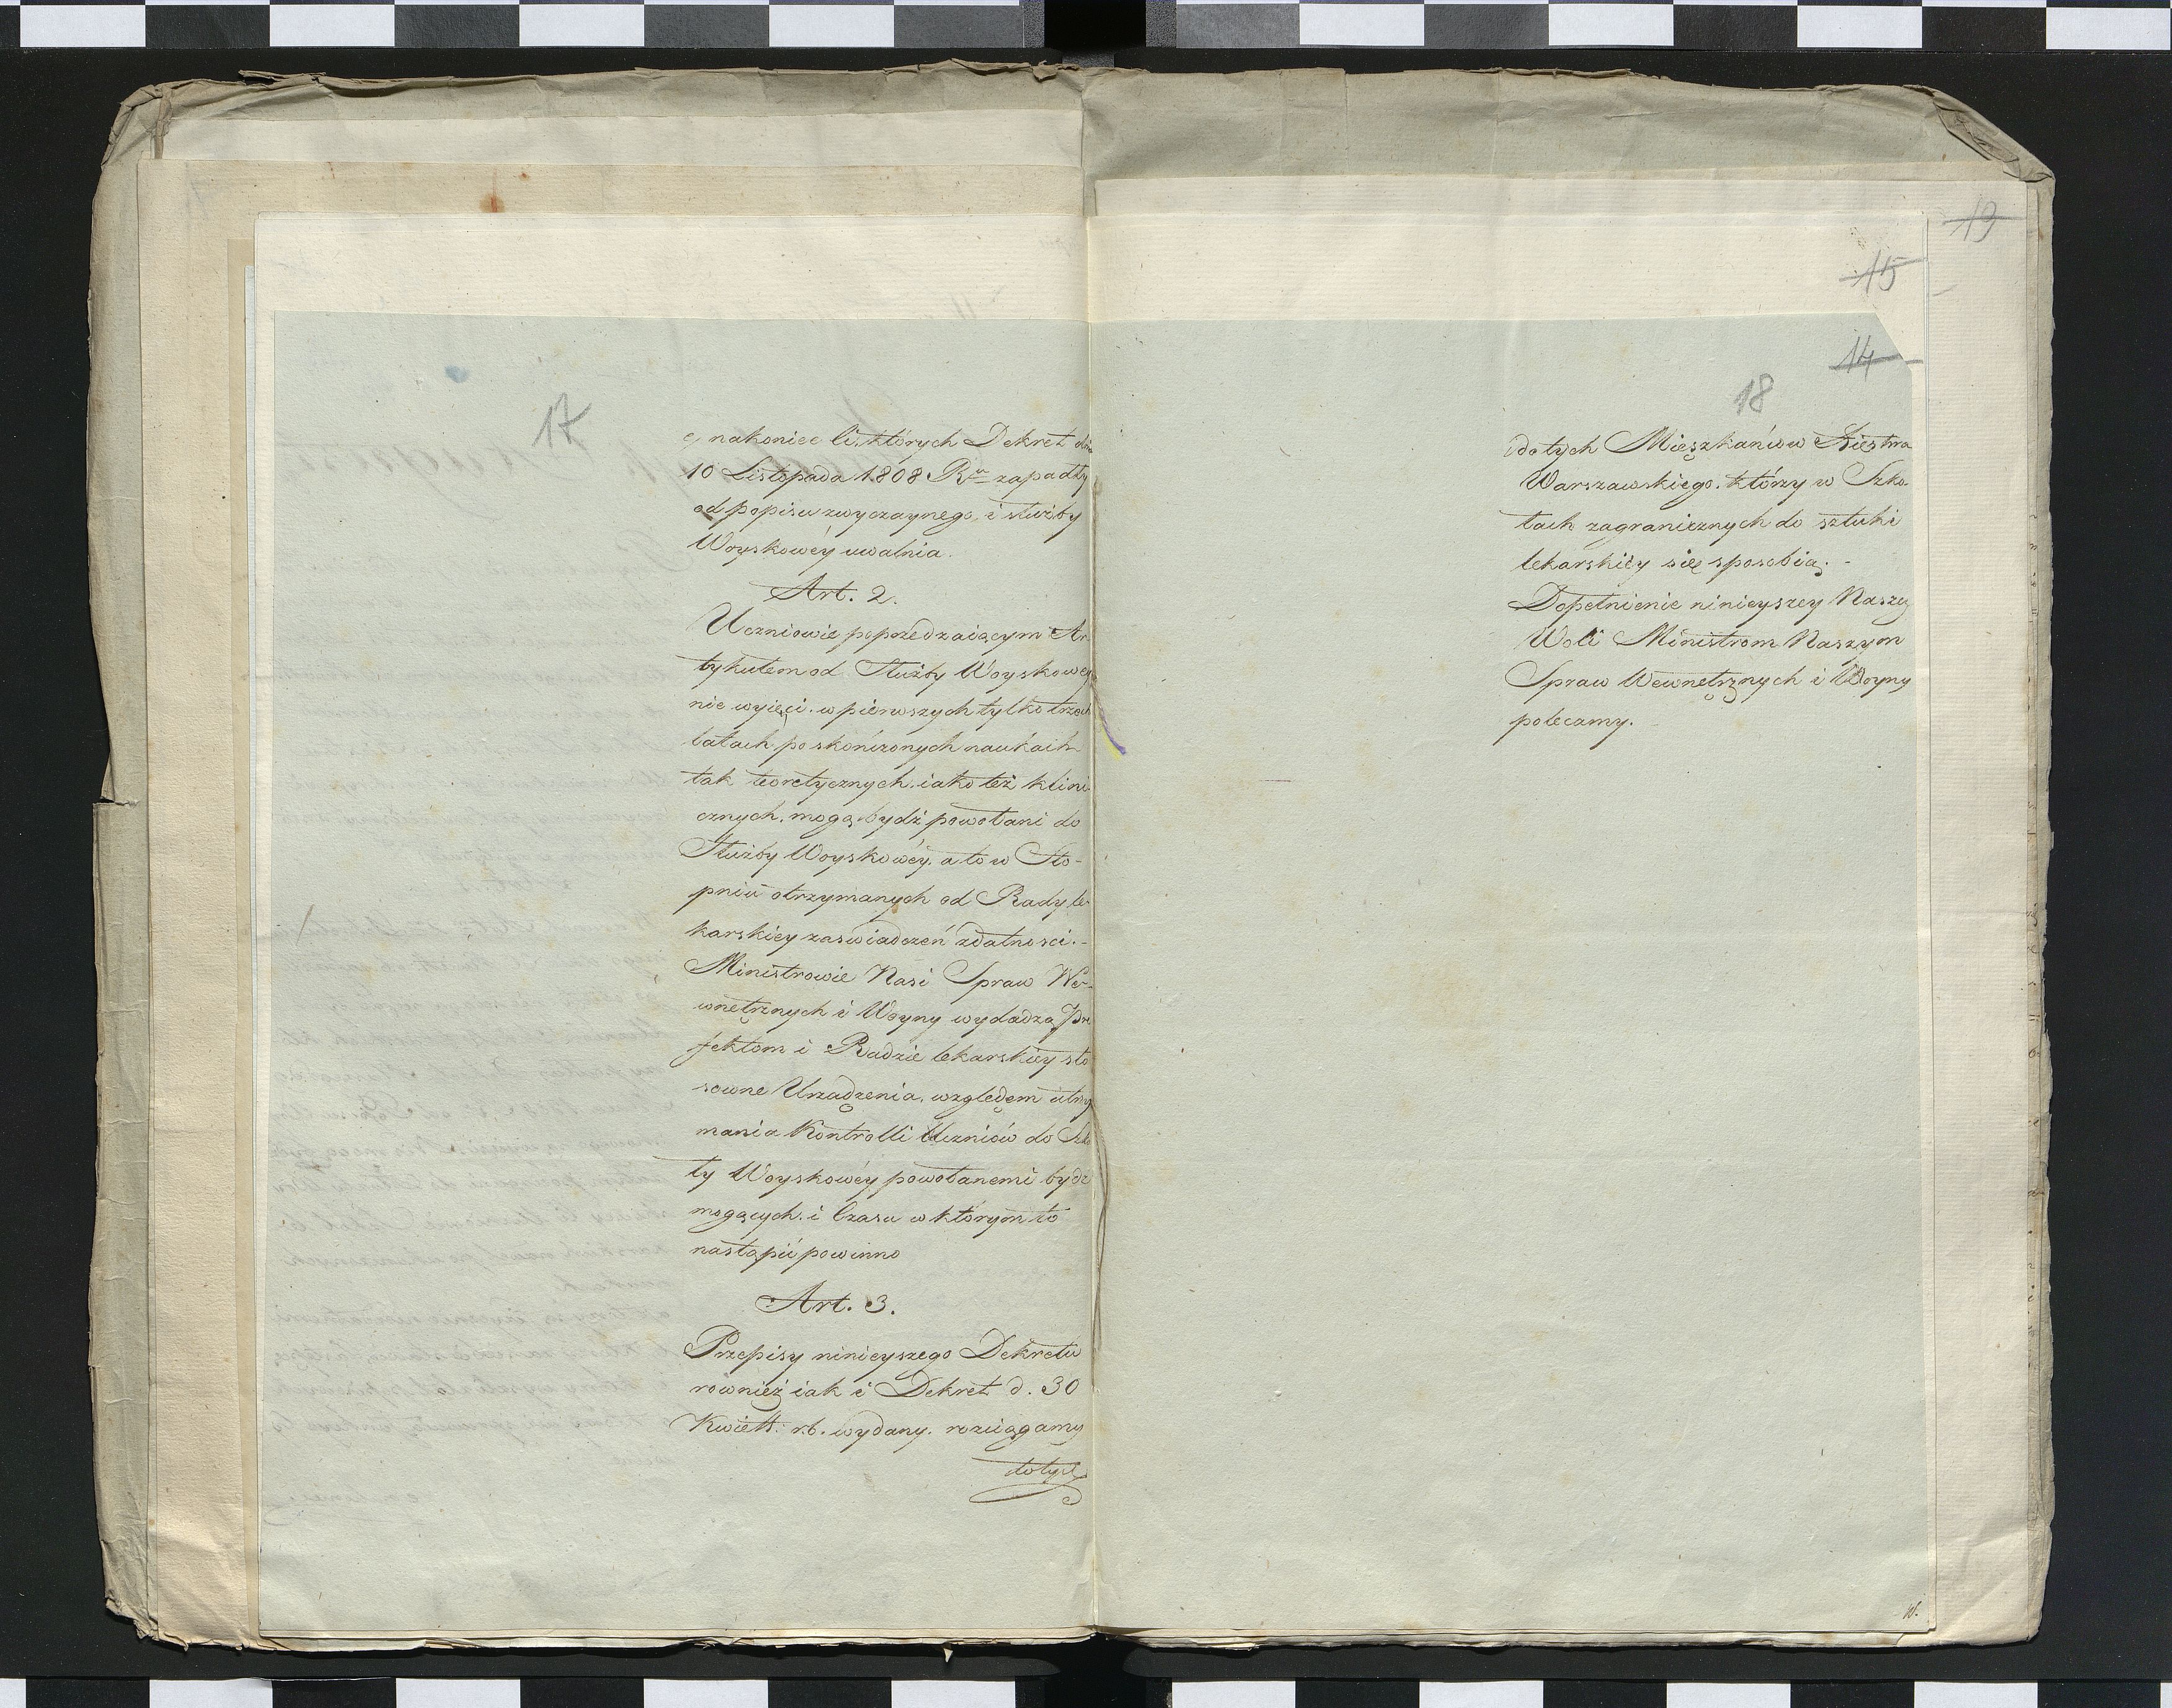 17
e, nakoniec li, których Dekret dnia
10 Listopada 1808 Ru zapadły
od popisu zwyczaynego, i służby
Woyskowéy uwalnia.
Art. 2.
Uczniowie poprzedzaiącym Ar-
tykułem od Służby Woyskowey
nie wyięci. w pierwszych tylko trzech
latach po skończonych naukach
tak teoretycznych. iako też klini-
cznych, mogą bydź powołani do
Służby Woyskowéy, a to w Sto-
pniu otrzymanych od Rady le-
karskiey zaswiadczeń zdatnosci.-
Ministrowie Nasi Spraw We-
wnętrznych i Woyny wydadzą Pre
fektom i Radzie lekarskiéy sto
sowne Urządzenia, względem utrzy
mania Kontrolli Uczniów do Szko
ły Woyskowéy powołanemi bydz
mogących. i Czasu w którym to
nastąpić powinno
Art. 3.
Przepisy ninieyszego Dekretu
rownież iak i Dekret d. 30
Kwiett: r.b. wydany. rozciągamy
do tych
19
15
14
18
do tych Mieszkańców Xięstwa
Warszawskiego. którzy w Szko-
łach zagranicznych do sztuki
lekarskiéy się sposobią. -
Dopełnienie ninieyszey Naszey
Woli Ministrom Naszym
Spraw Wewnętrznych i Woyny
polecamy.